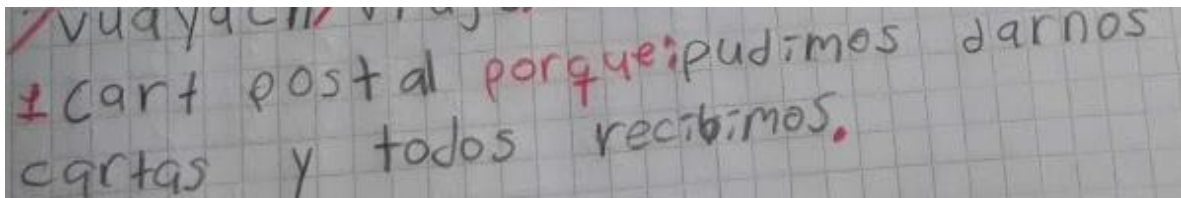 1 cart postal porque:pudimos darnos
cartas y todos recibimos.